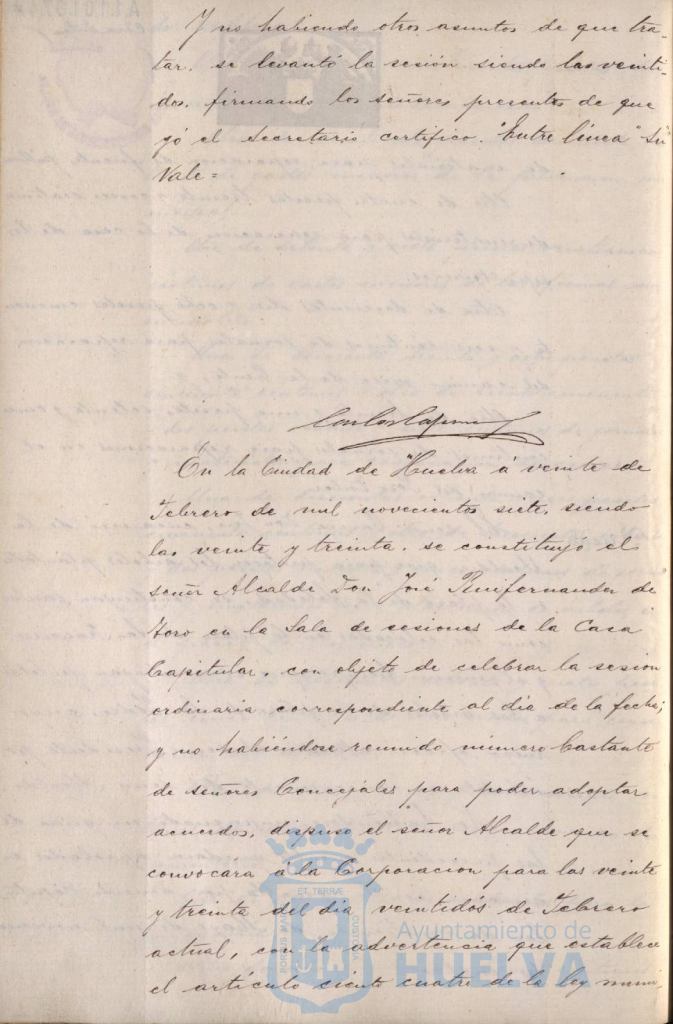 Y no habiendo otros asuntos de que tra-
tar, se levantó la sesión siendo las veinti-
dos, firmando los señores presentes de que
yó el Secretario certifico. "Entre línea"
Vale=
Carlos
En la Ciudad de Huelva á veinte de
Febrero de mil novecientos siete, siendo
las veinte y treinta, se constituyó el
señor Alcalde Don José Ruifernandez de
Toro en la Sala de sesiones de la Casa
Capitular, con objeto de celebrar la sesion
ordinaria correspondiente al dia de la fecha;
y no habiéndose reunido número bastante
de señores Concejales para poder adoptar
acuerdos, dispuso el señor Alcalde que se
convocára á la Corporacion para las veinte
y treinta del dia veintidós de Febrero
actual, con la advertencia que establece
el artículo ciento cuatro de la ley muni-
PORTUS MARIS ET TERRÆ CUSTODIA
Ayuntamiento de
HUELVA